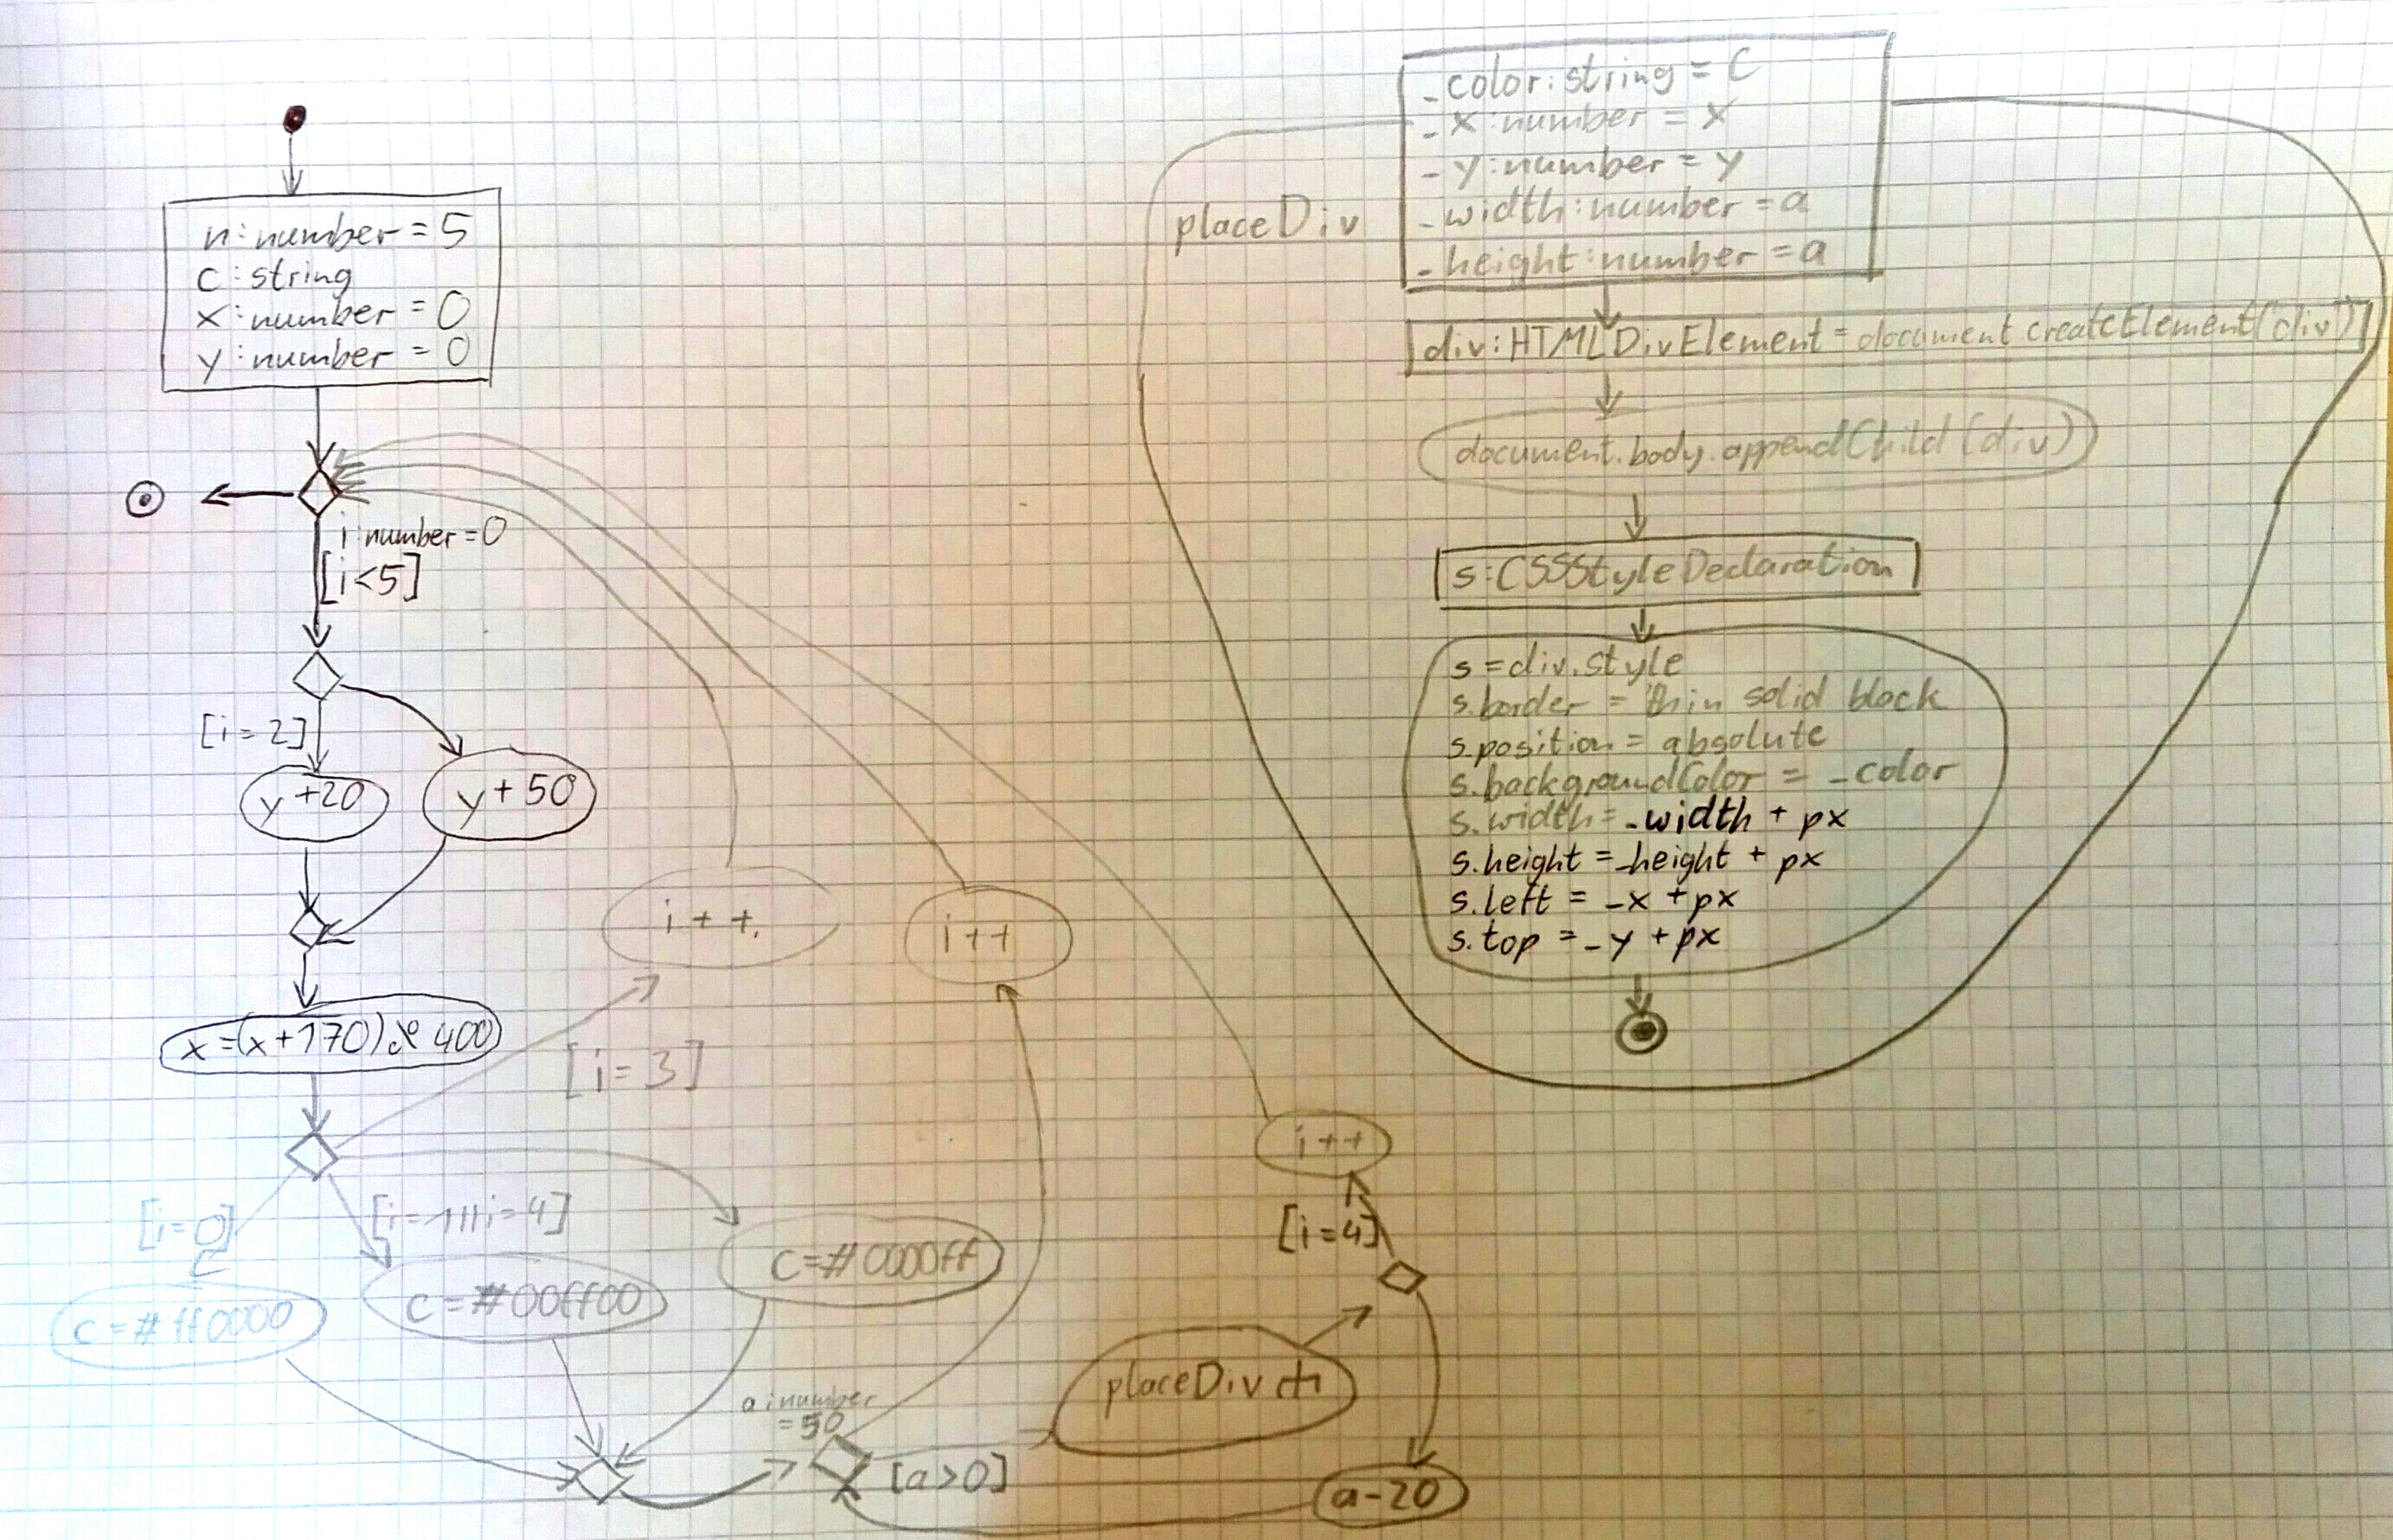 n:number = 5
c:string
x:number = 0
y:number = 0
i number = 0
[i<5]
[i=2]
y+20
y+50
i++.
i++
x=(x+170)% 400
[i=3]
[i=0]
[i=1||i=4]
c=#ff0000
c=#00ff00
c=#0000ff
a:number
=50
[a>0]
placeDiv
a-20
[i=4]
i++
placeDiv
_color:string = C
_x:number = x
_y:number = y
_width:number = a
_height:number = a
div:HTMLDivElement = document.createElement("div")
document.body.appendChild(div)
s:CSSStyleDeclaration
s=div.style
s.border = thin solid black
s.position = absolute
s.backgroundColor = _color
s.width= _width + px
s.height = _height + px
s.left = _x + px
s.top = _y + px